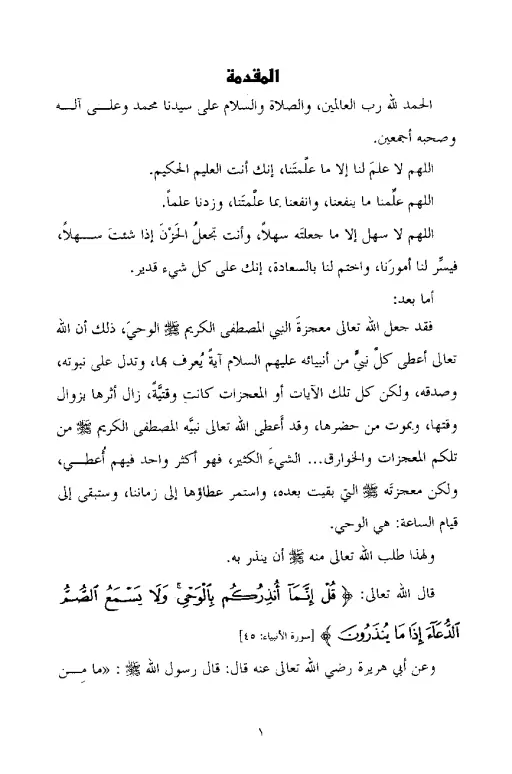 المقدمة
الحمد لله رب العالمين، والصلاة والسلام على سيدنا محمد وعلــى آلــه
وصحبه أجمعين.
اللهم لا علمَ لنا إلا ما علّمتَنا، إنك أنت العليم الحكيم.
اللهم علِّمنا ما ينفعنا، وانفعنا بما علَّمتَنا، وزدنا علماً.
اللهم لا سهل إلا ما جعلتَه سهلاً، وأنت تجعلُ الحَزْنَ إذا شئتَ ســهلاً،
فيسِّر لنا أمورَنا، واختم لنا بالسعادة، إنك على كل شيء قدير.
أما بعد:
فقد جعل الله تعالى معجزةَ النبي المصطفى الكريم ﷺ الوحيَ، ذلك أن الله
تعالى أعطى كلَّ نبيٍّ من أنبيائه عليهم السلام آيةً يُعرف بها، وتدل على نبوته،
وصدقه، ولكن كل تلك الآيات أو المعجزات كانت وقتيَّةً، زال أثرها بزوال
وقتها، وبموت من حضرها، وقد أَعطى الله تعالى نبيَّه المصطفى الكريم ﷺ من
تلكم المعجزات والخوارق... الشيءَ الكثير، فهو أكثر واحد فيهم أُعطــي،
ولكن معجزتَه ﷺ التي بقيت بعده، واستمر عطاؤها إلى زماننا، وستبقى إلى
قيام الساعة: هي الوحي.
ولهذا طلب الله تعالى منه ﷺ أن ينذر به.
قال الله تعالى: ﴿ قُلْ إِنَّمَا أُنذِرُكُم بِالْوَحْيِ ۚ وَلَا يَسْمَعُ الصُّمُّ
الدُّعَاءَ إِذَا مَا يُنذَرُونَ ﴾ [سورة الأنبياء: ٤٥]
وعن أبي هريرة رضي الله تعالى عنه قال: قال رسول الله ﷺ : «ما مِــن
١